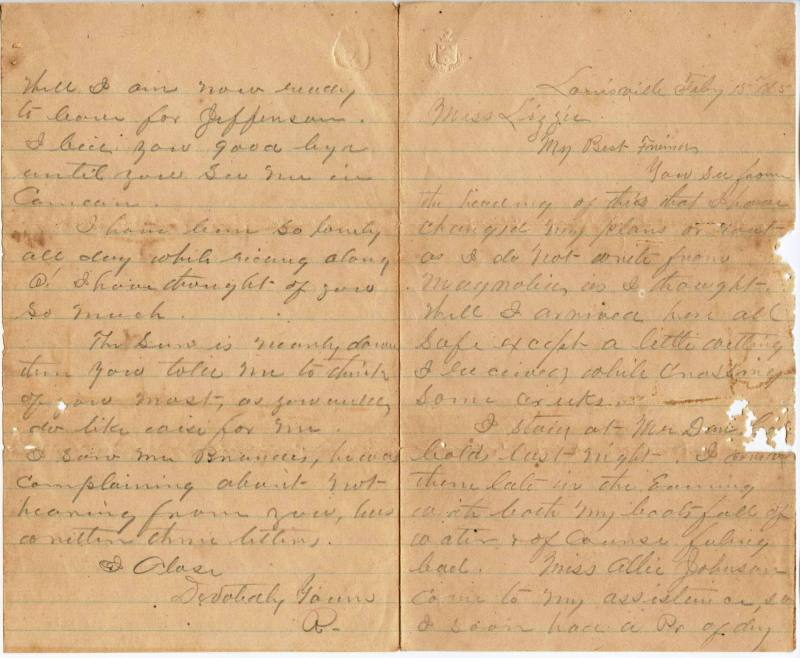 Louisville Feby 15th 85
Miss Lizzie
My Best Friend
You see from
the heading of this that I have
changed my plans or rout
as I do not write from
Magnolia, as I thought.
Well I arrived here all
safe except a little wetting
I received while crossing
some creeks.
I staid at Mr
last night. I arrived
there late in the Evening
with both my boots full of
water & of course feeling
bad. Miss Allie Johnson
came to my assistence, so
I soon had a Pr of dry
Well I am now ready
to leave for Jefferson.
I bid you good bye
until you see me in
I have been so lonely
all day while riding along
O! I have thought of you
so much.
The Sun is nearly down
then you told me to think
of you most, as you would
do like wise for me.
I saw Mr , he was
complaining about not
hearing from you, has
written three letters.
I Close
Devotedly Yours
R-